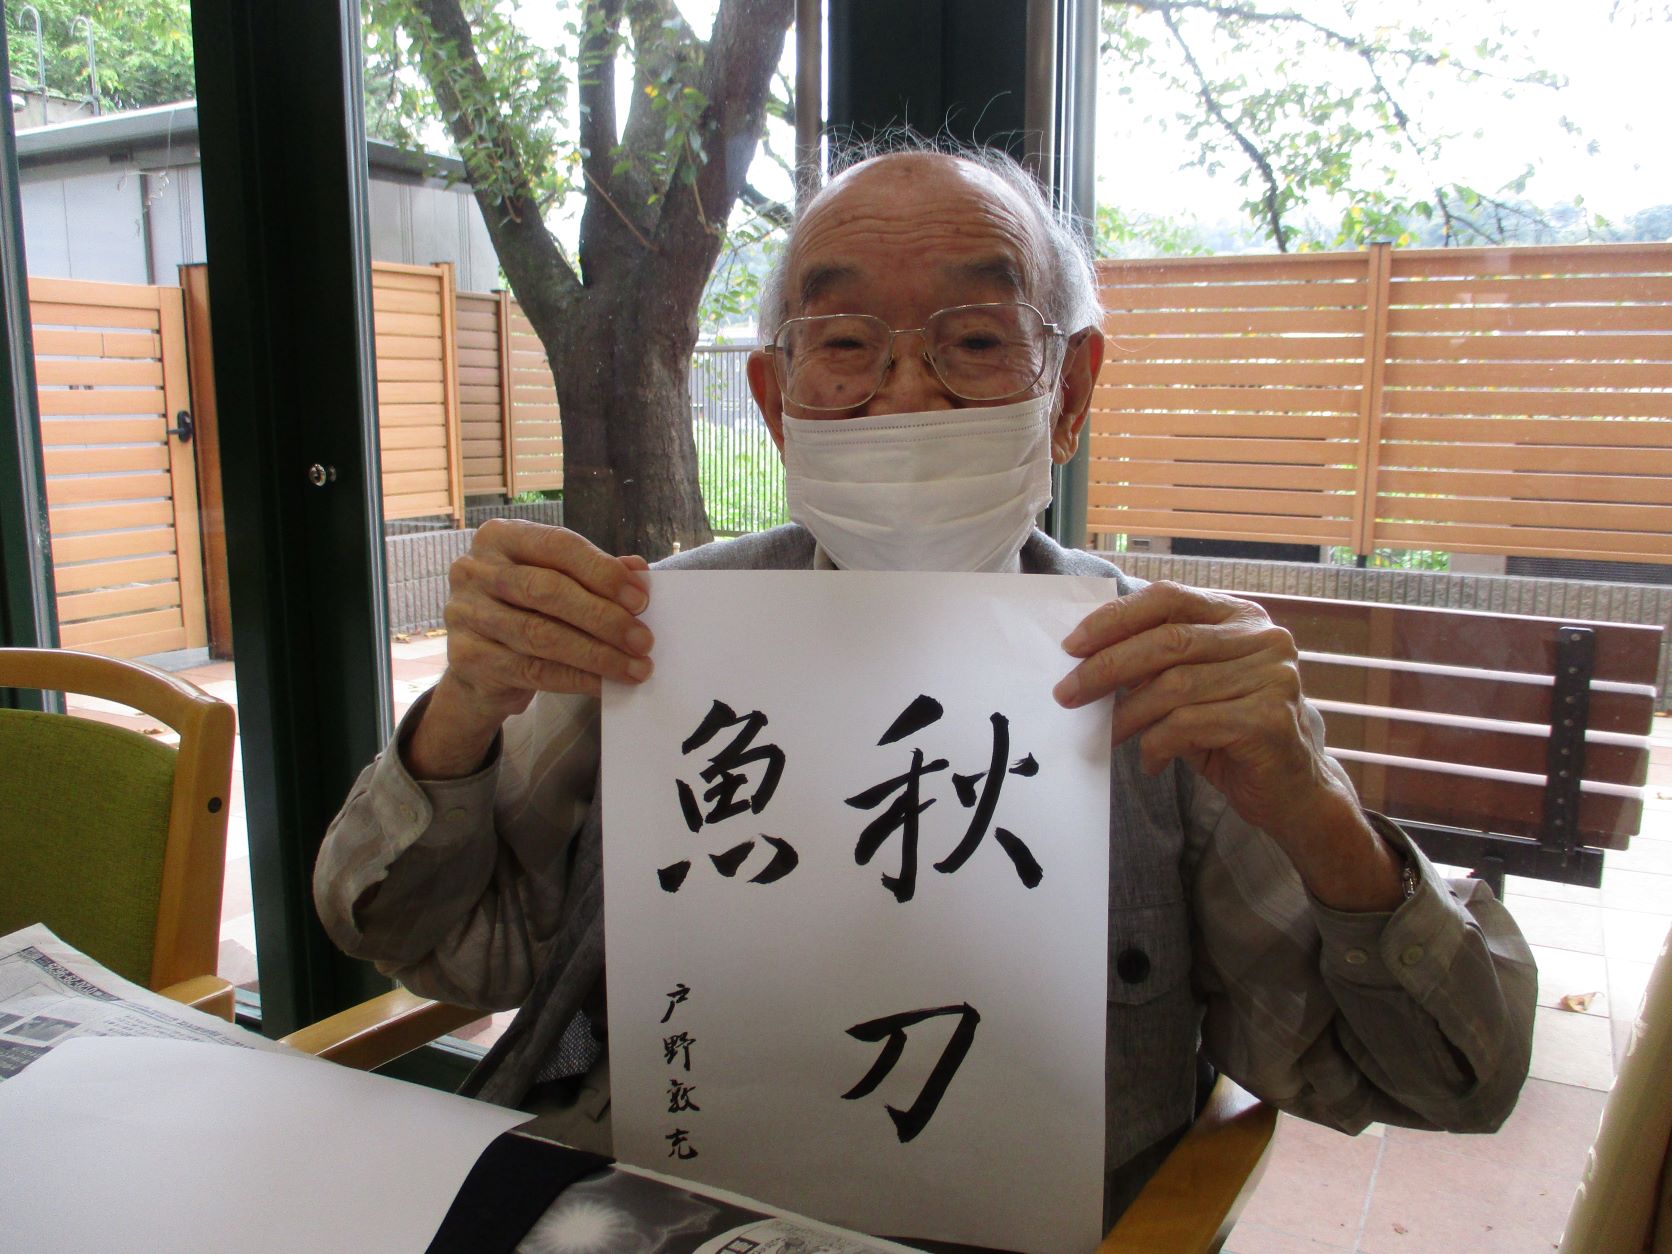 秋刀
魚
戸野敦充